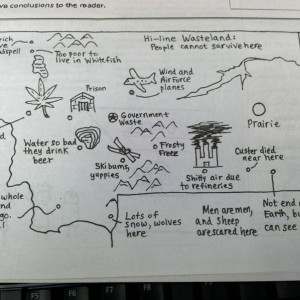 va conclusions to the reader.
rich
ve
adspell
Too poor to
live in Whitefish
Hi-line Wasteland:
People cannot survive here
Wind and
Air Force
planes
Prison
Government
waste
Prairie
Water so bad
they drink
beer
Frosty
Freeze
Ski bums,
yuppies
Shitty air due
to refineries
Custer died
near here
whole
nd
go.
Lots of
snow, wolves
here
Men are men,
and sheep
are scared here
Not end o
Earth, bu
can see
F6
F7
F8